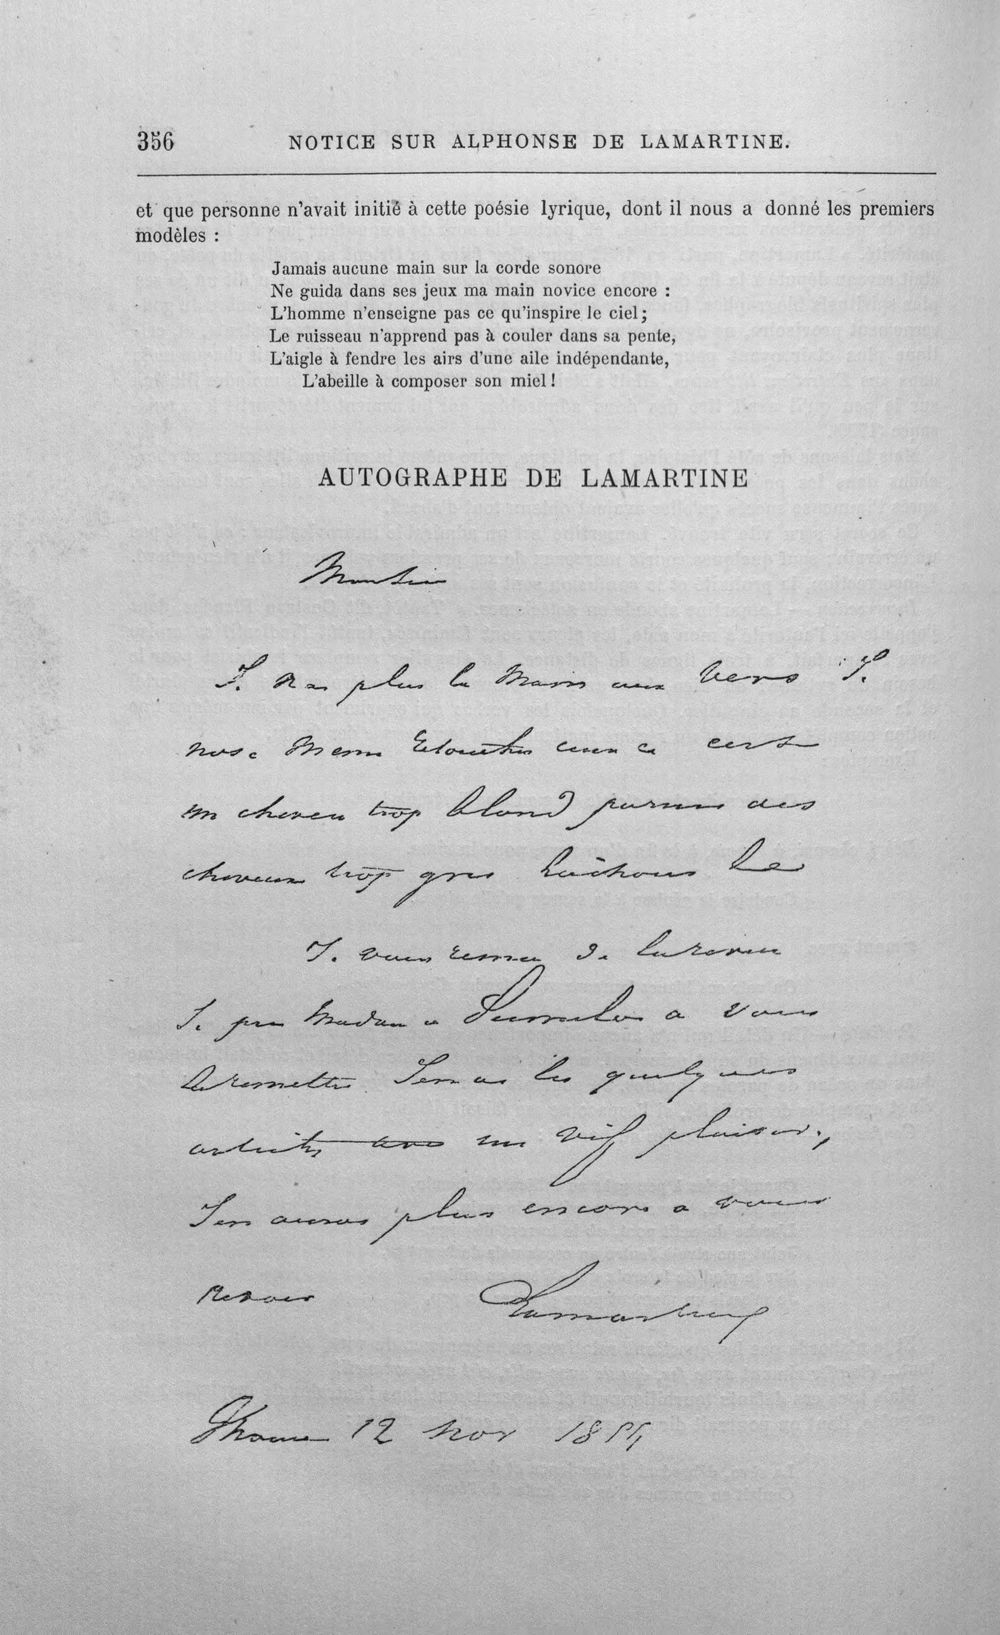 356 NOTICE SUR ALPHONSE DE LAMARTINE.
et que personne n'avait initié à cette poésie lyrique, dont il nous a donné les premiers
modèles :
Jamais aucune main sur la corde sonore
Ne guida dans ses jeux ma main novice encore :
L'homme n'enseigne pas ce qu'inspire le ciel;
Le ruisseau n'apprend pas à couler dans sa pente,
L'aigle à fendre les airs d'une aile indépendante,
L'abeille à composer son miel !
AUTOGRAPHE DE LAMARTINE
Monsieur
Je n'ai plus la main aux vers Je
n'ose meme retoucher ceux ci c'est
un cheveu trop blond parmi des
cheveux trop gris
Je vous remercie de la revue
Je prie Madame a vous
la remettre J'en ai lu quelques
articles avec un vif plaisir,
J'en aurai plus encore a vous
revoir Lamartine
12 nov 1854